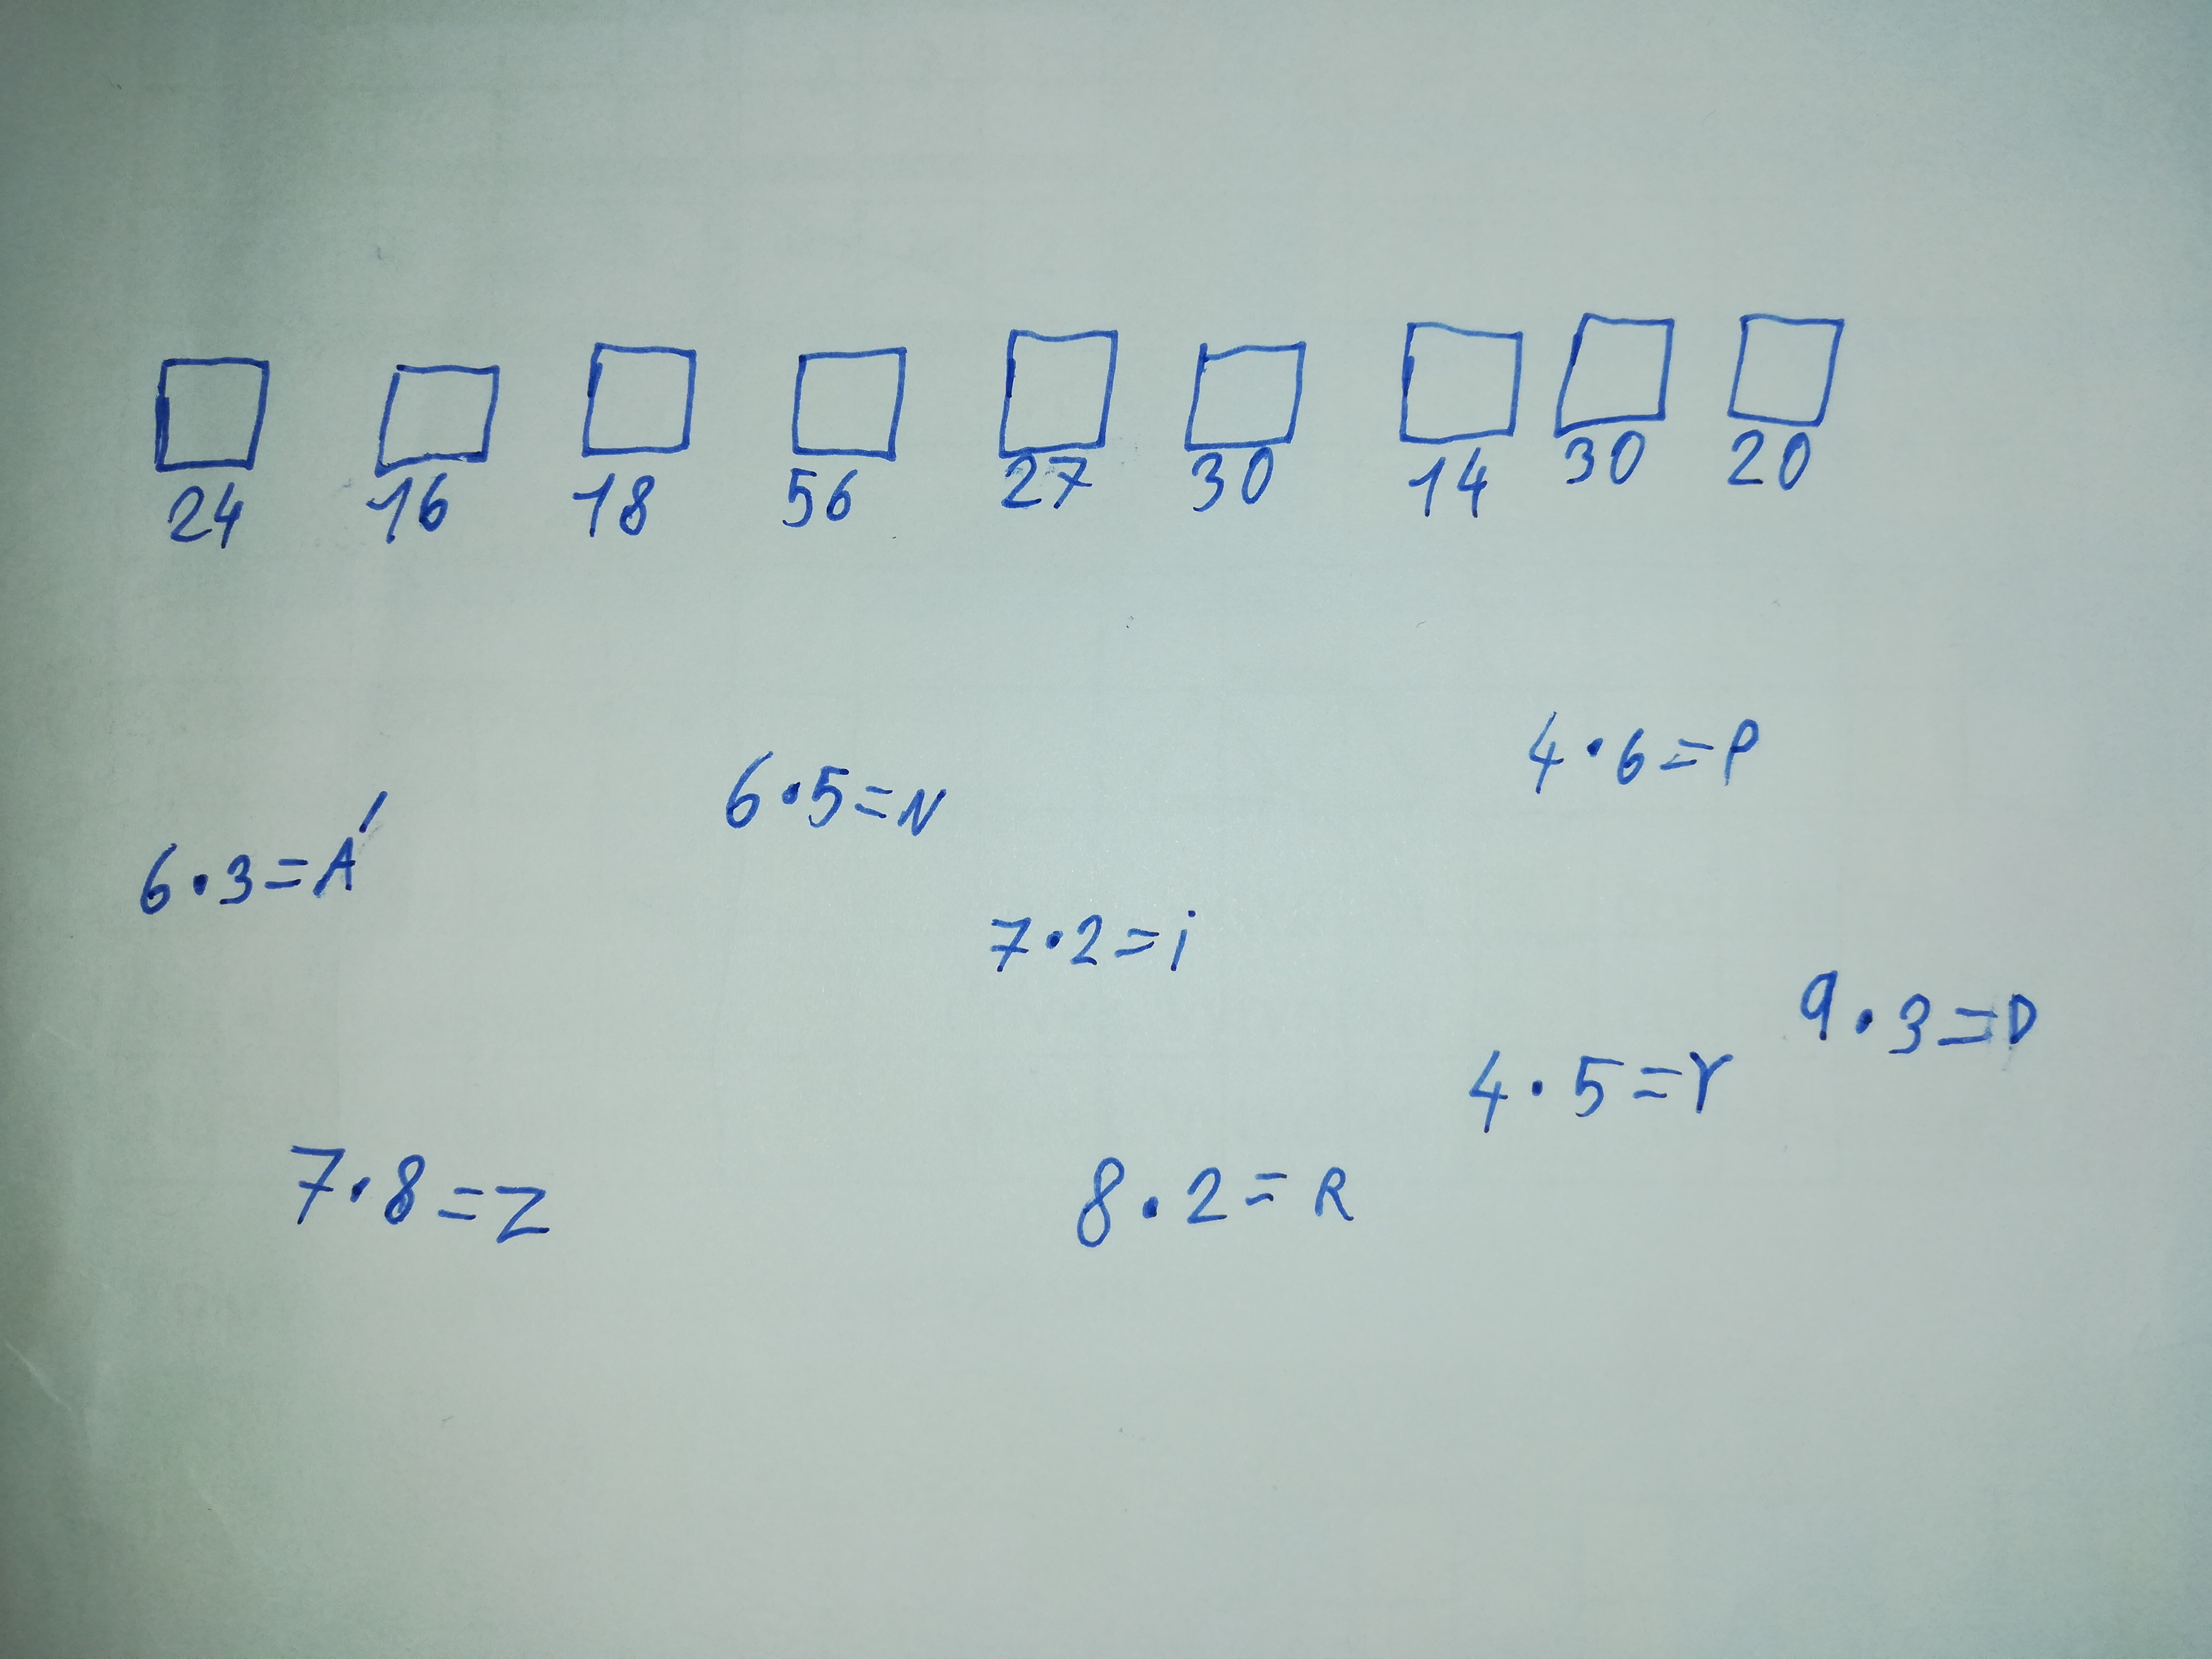 24 16 18 56 27 30 14 30 20
4·6=P
6·5=N
6·3=Á
7·2=i
9·3=D
4·5=Y
7·8=Z
8·2=R